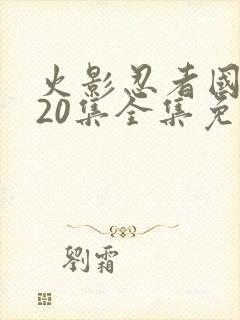 火影忍者國
20集全集免
劉霜